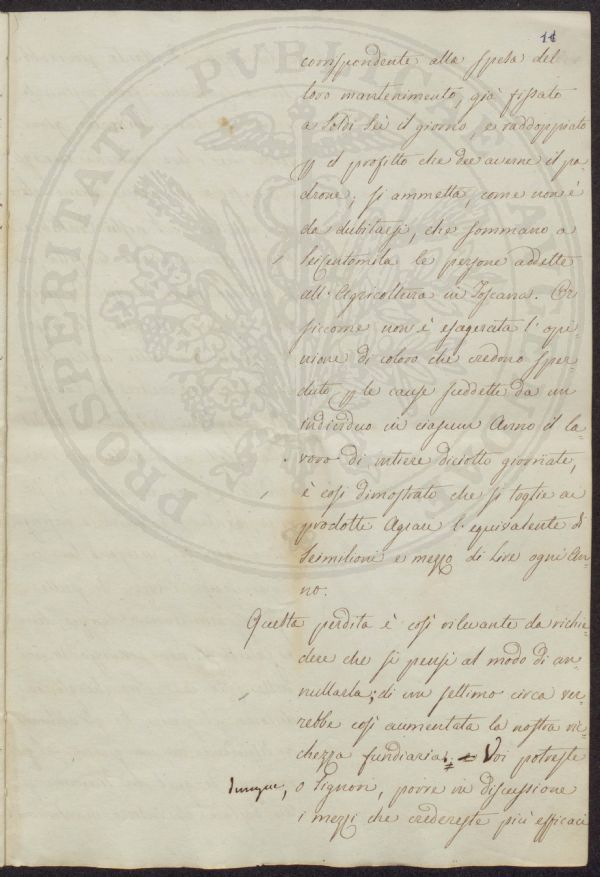 11
corrispondente alla spesa del
loro mantenimento, già fissato
a Soldi Sei il giorno, e raddoppiato
p il profitto che dee averne il pa-
drone; si ammetta, come non è
da dubitarsi, che sommano a
seicentomila le persone addette
all'Agricoltura in Toscana. Or
siccome non è esagerata l'opi-
nione di coloro che credono sper-
duto p le cause suddette da un
individuo in ciascun Anno il la-
voro di intiere diciotto giornate,
è così dimostrato che si toglie ai
prodotti Agrari l'equivalente di
Seimilioni e mezzo di Lire ogni An-
no.
Questa perdita è così rilevante da richie-
dere che si pensi al modo di an-
nullarla; di un settimo circa ver-
rebbe così aumentata la nostra ric-
chezza fundiaria. = Voi potreste
dunque, o Signori, porre in discussione
i mezzi che credereste più efficaci
PROSPERITATI PVBLICAE AVGENDAE